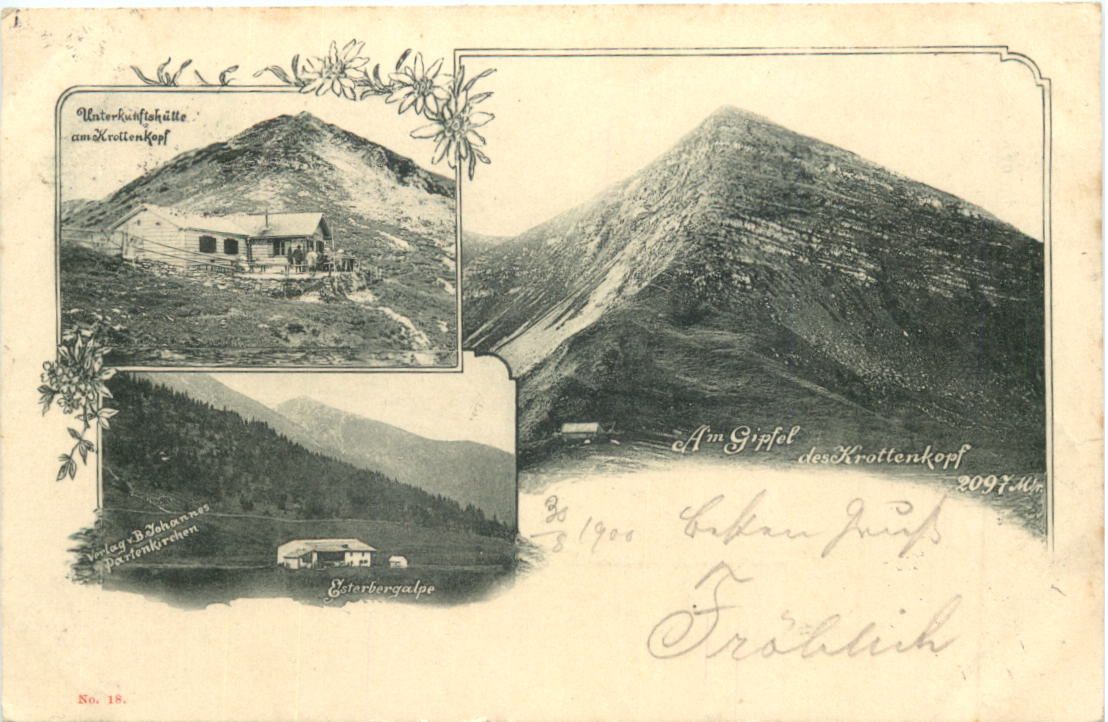 Unterkunftshütte
am Krottenkopf
Am Gipfel
des Krottenkopf
2097 Mtr.
Verlag v. B. Johannes
Partenkirchen
Esterbergalpe
30/8 1900 Besten Gruß
Fröhlich
No. 18.